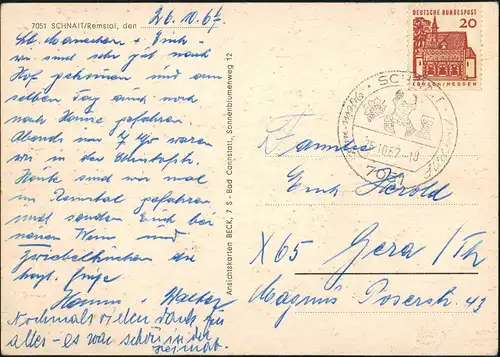 7051 SCHNAIT/Remstal, den 26.10.67
Lb. Mariechen + Erich -
wir sind sehr gut nach
Hof gekommen und am
selben Tag auch noch
nach Hause gefahren
Abends um 7 Uhr waren
wir in der
Heute sind wir mal
im Remstal gefahren
und senden Euch bei
neuen Wein und
Zwiebelkuchen die
hzgl. Grüße
Hanni + Walter
Nochmals vielen Dank für
alles - es war schön in der
Heimat.
Ansichtskarten BECK, 7 S - Bad Cannstatt, Sonnenblumenweg 12
DEUTSCHE BUNDESPOST
20
LORSCH/HESSEN
SCHNAIT
26.10.67-10
7051
Familie
Erich Herold
X65 Gera/Th
Magnus Poserstr. 43